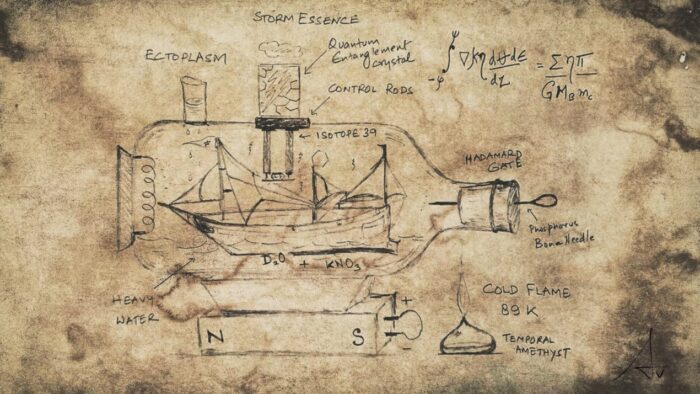 STORM ESSENCE
ECTOPLASM
Quantum
Entanglement
crystal
CONTROL RODS
ISOTOPE 39
HADAMARD
GATE
Phosphorus
Bone Needle
D₂O + KNO₃
HEAVY
WATER
N S
+
-
COLD FLAME
89 K
TEMPORAL
AMETHYST
= Σηπ
GM_B m_c